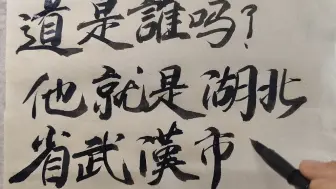 道是誰吗?
他就是湖北
省武漢市